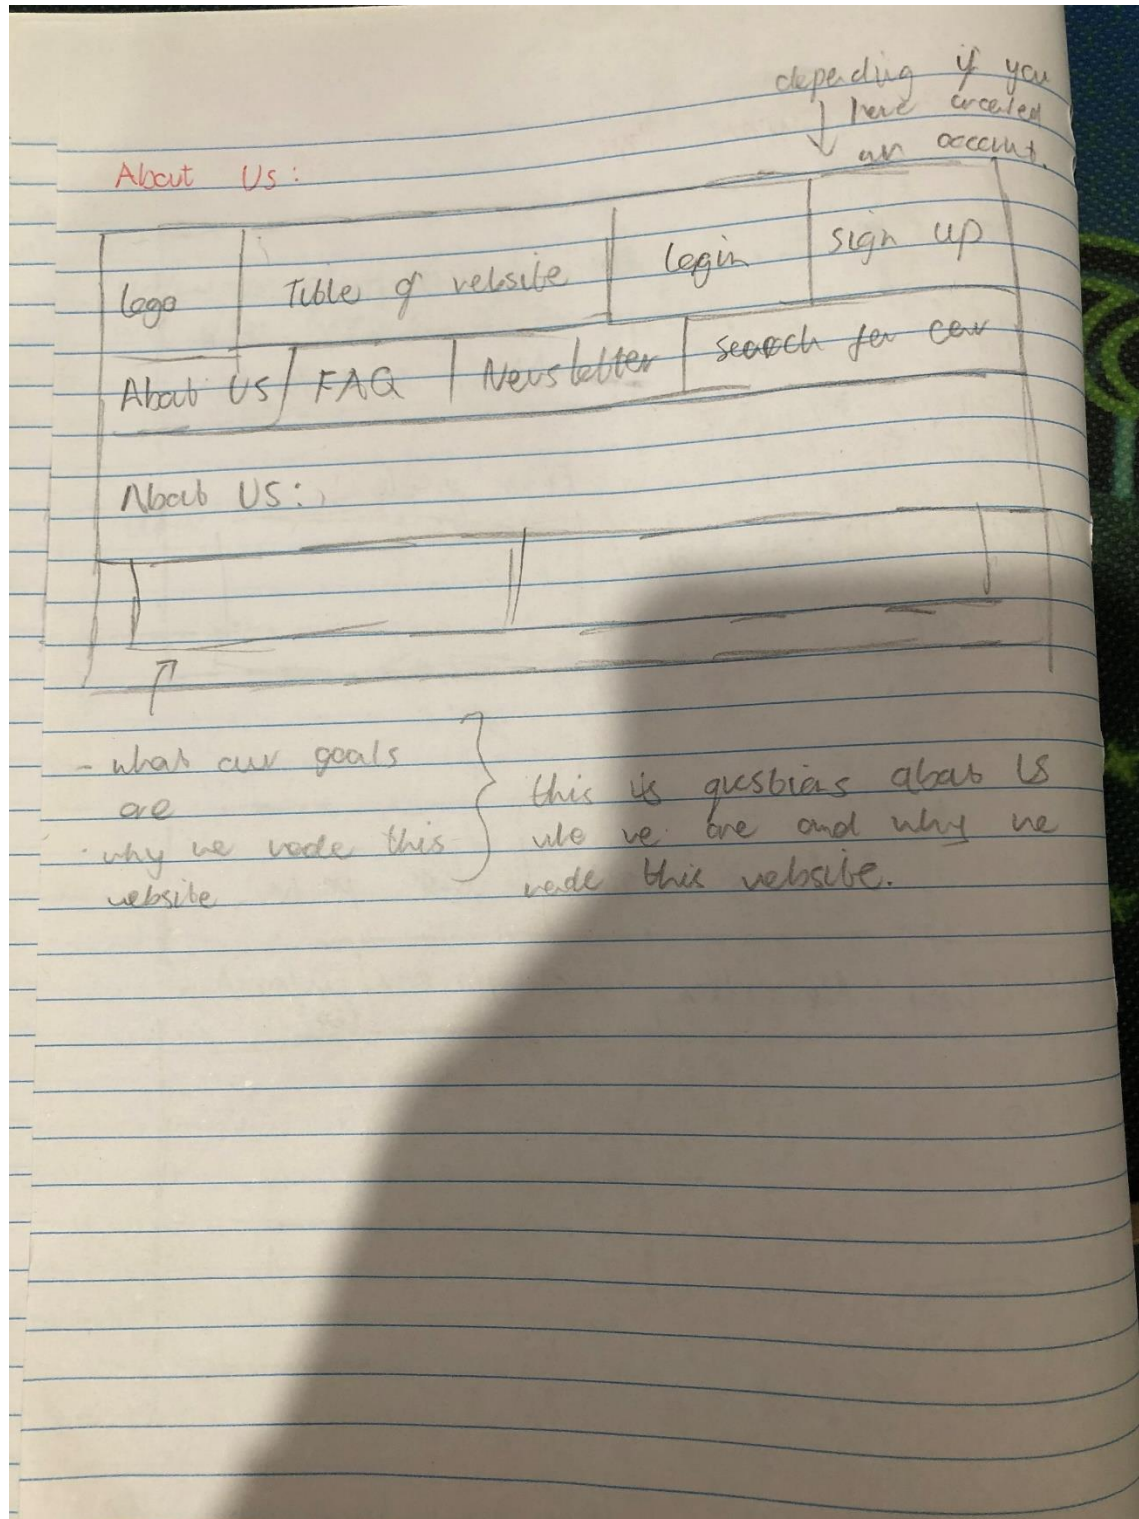 depending if you
have created
an account.
About Us:
logo
Title of website
login
sign up
About Us
FAQ
Newsletter
search for car
About US:
- what our goals
are
- why we made this
website
this is questions about US
who we are and why we
made this website.